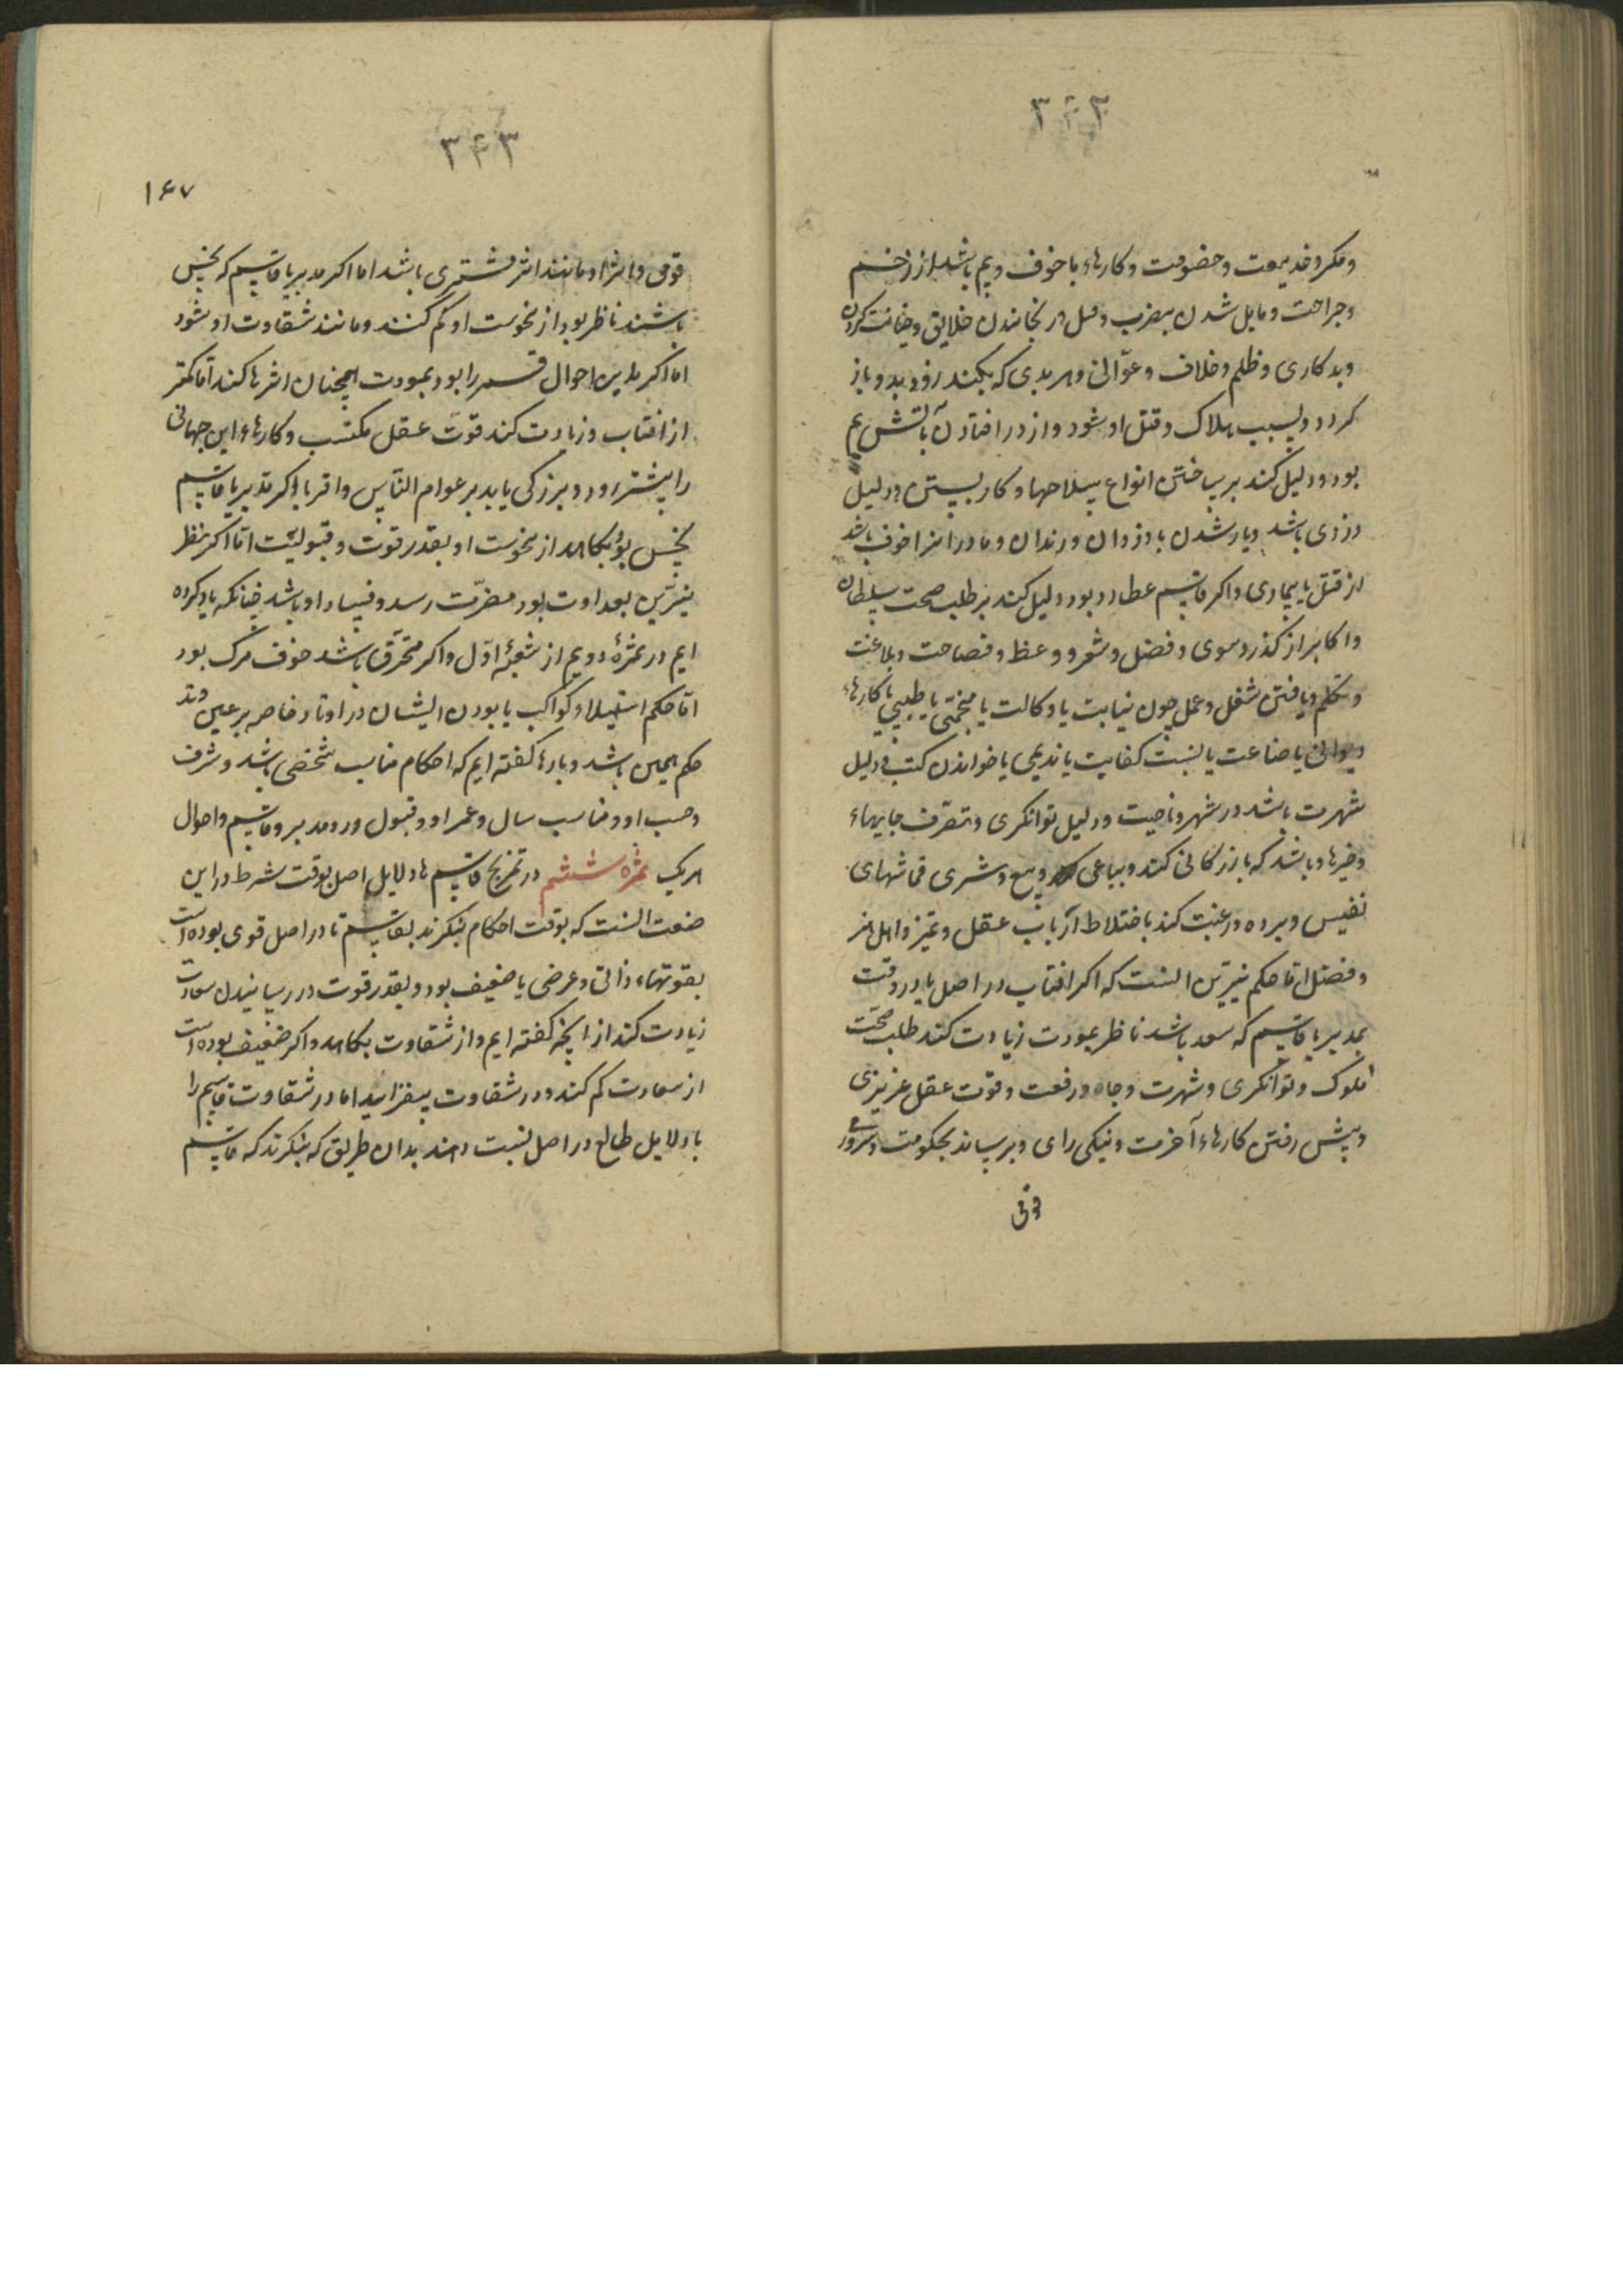 ۳۶۲
و مکر و خدیعت و خصومت و کارهاء با خوف و بیم باشد از زخم
و جراحت و مایل شدن بضرب و قتل و رنجانیدن خلایق و خیانت کردن
و بدکاری و ظلم و خلاف و عوانی و هر بدی که بکند زود بدو باز
کردد و بسبب هلاک و قتل او شود و از در افتادن باتش بیم
بود و دلیل کند بر ساختن انواع سلاحها و کار بستن و دلیل
دزدی باشد و یار شدن با دزدان و رندان و مادر او را خوف باشد
از قتل یا بیماری و اکر قاسم عطارد بود دلیل کند بر طلب صحبت سلطان
و اکابر از کذر دموی و فضل و شعر و وعظ و فصاحت و بلاغت
و تکلم و یافتن شغل و عمل چون نیابت یا وکالت یا منجمی یا طبیبی یا کارهاء
دیوانی یا صناعت یا لنسبت کفایت یا ندیمی یا خواندن کتب و دلیل
شهرت باشد در شهر و ناحیت و دلیل توانکری و تصرف جایهاء
و خیرها و باشد که بازرکانی کند و بیاعی و بیع و شری قماشهای
نفیس و برده و رغبت کند باختلاط ارباب عقل و تمیز و اهل هنر
و فضل اما حکم نیرین انست که اکر افتاب در اصل یا در وقت
بمدبر یا قاسم که سعد باشد ناظر بمودت زیادت کند طلب صحبت
ملوک و توانکری و شهرت و جاه و رفعت و قوت عقل غریزی
و پیش رفتن کارهاء آخرت و نیکی رای و برساند بحکومت و سرور
قومی
۳۶۳
۱۶۷
قومی و اثر او مانند اثر مشتری باشد اما اکر مدبر یا قاسم که نحس
باشند ناظر بود از نحوست او کم کنند و مانند شقاوت او شود
اما اکر بدین احوال قمر را بود بمودت همچنان اثرها کند اما کمتر
از افتاب و زیادت کند قوت عقل مکتسب و کارهاء این جهانی
را پیشتر رود و بزرکی یابد بر عوام الناس و اقربا و اکر مدبر یا قاسم
نحس بود بکاهد از نحوست او بقدر قوت و قبولیت اما اکر نظر
نیرین بعداوت بود مضرت رسد و فساد او باشد چنانکه یاد کرده
ایم در ثمرهٔ دویم از شعبهٔ اول و اکر محترق باشد خوف مرک بود
اما حکم استیلاء کواکب یا بودن ایشان در اوتاد خاصه بر عین وتد
حکم همین باشد و بارها کفته ایم که احکام مناسب شخصی باشد و شرف
و حسب او و مناسب سال و عمر او و قبول و رد مدبر و قاسم و احوال
هریک ثمرهٔ ششم در تمزیج قاسم ها و دلایل اصل بوقت شرط در این
صنعت انست که بوقت احکام بنکرند بقاسم تا در اصل قوی بوده است
بقوتهاء ذاتی و عرضی یا ضعیف بود و بقدر قوت در رسانیدن سعادت
زیادت کند از انچه کفته ایم و از شقاوت بکاهد و اکر ضعیف بوده است
از سعادت کم کند و در شقاوت بیفزاید اما در شقاوت قاسم را
با دلایل طالع در اصل نسبت دهند بدان طریق که بنکرند که قاسم